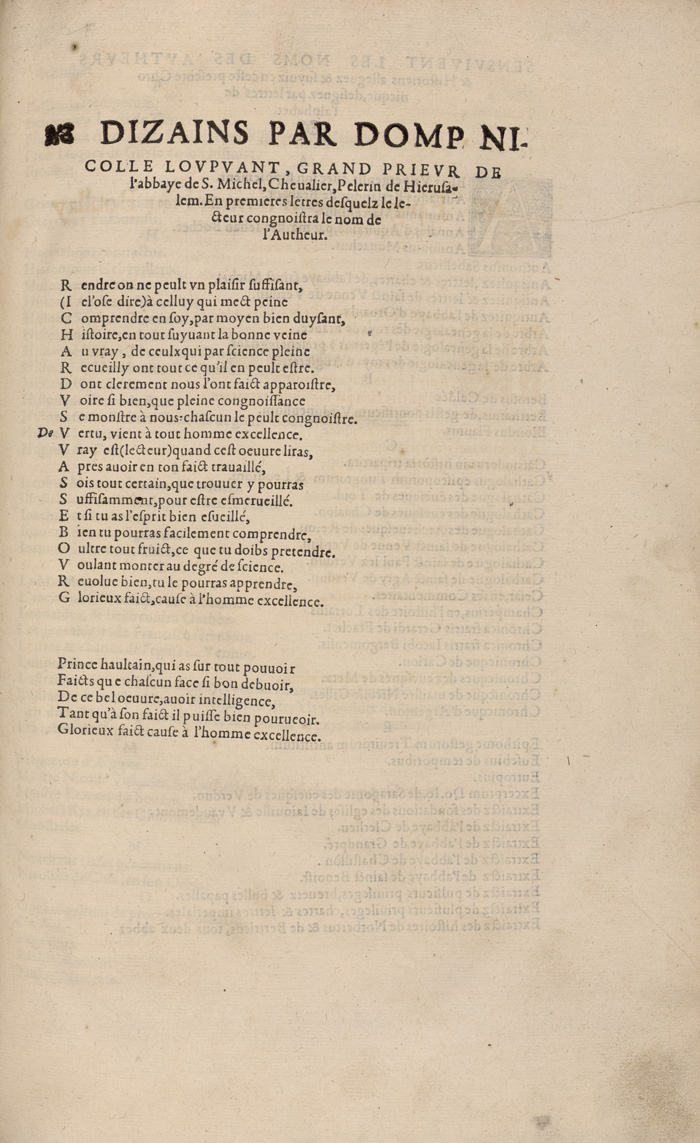 DIZAINS PAR DOMP NI-
COLLE LOVPVANT, GRAND PRIEVR DE
l'abbaye de S. Michel, Cheualier, Pelerin de Hierusa-
lem. En premieres letres desquelz le le-
cteur congnoistra le nom de
l'Autheur.
R endre on ne peult vn plaisir suffisant,
(I el'ose dire)à celluy qui mect peine
C omprendre en soy, par moyen bien duysant,
H istoire, en tout suyuant la bonne veine
A u vray, de ceulx qui par science pleine
R ecueilly ont tout ce qu'il en peult estre.
D ont clerement nous l'ont faict apparoistre,
V oire si bien, que pleine congnoissance
S e monstre à nous: chascun le peult congnoistre.
De V ertu, vient à tout homme excellence.
V ray est (lecteur) quand cest oeuure liras,
A pres auoir en ton faict trauaillé,
S ois tout certain, que trouuer y pourras
S uffisamment, pour estre esmerueillé.
E t si tu as l'esprit bien esueillé,
B ien tu pourras facilement comprendre,
O ultre tout fruict, ce que tu doibs pretendre.
V oulant monter au degré de science.
R euolue bien, tu le pourras apprendre,
G lorieux faict, cause à l'homme excellence.
Prince haultain, qui as sur tout pouuoir
Faicts que chascun face si bon debuoir,
De ce bel oeuure, auoir intelligence,
Tant qu'à son faict il puisse bien pourueoir.
Glorieux faict cause à l'homme excellence.